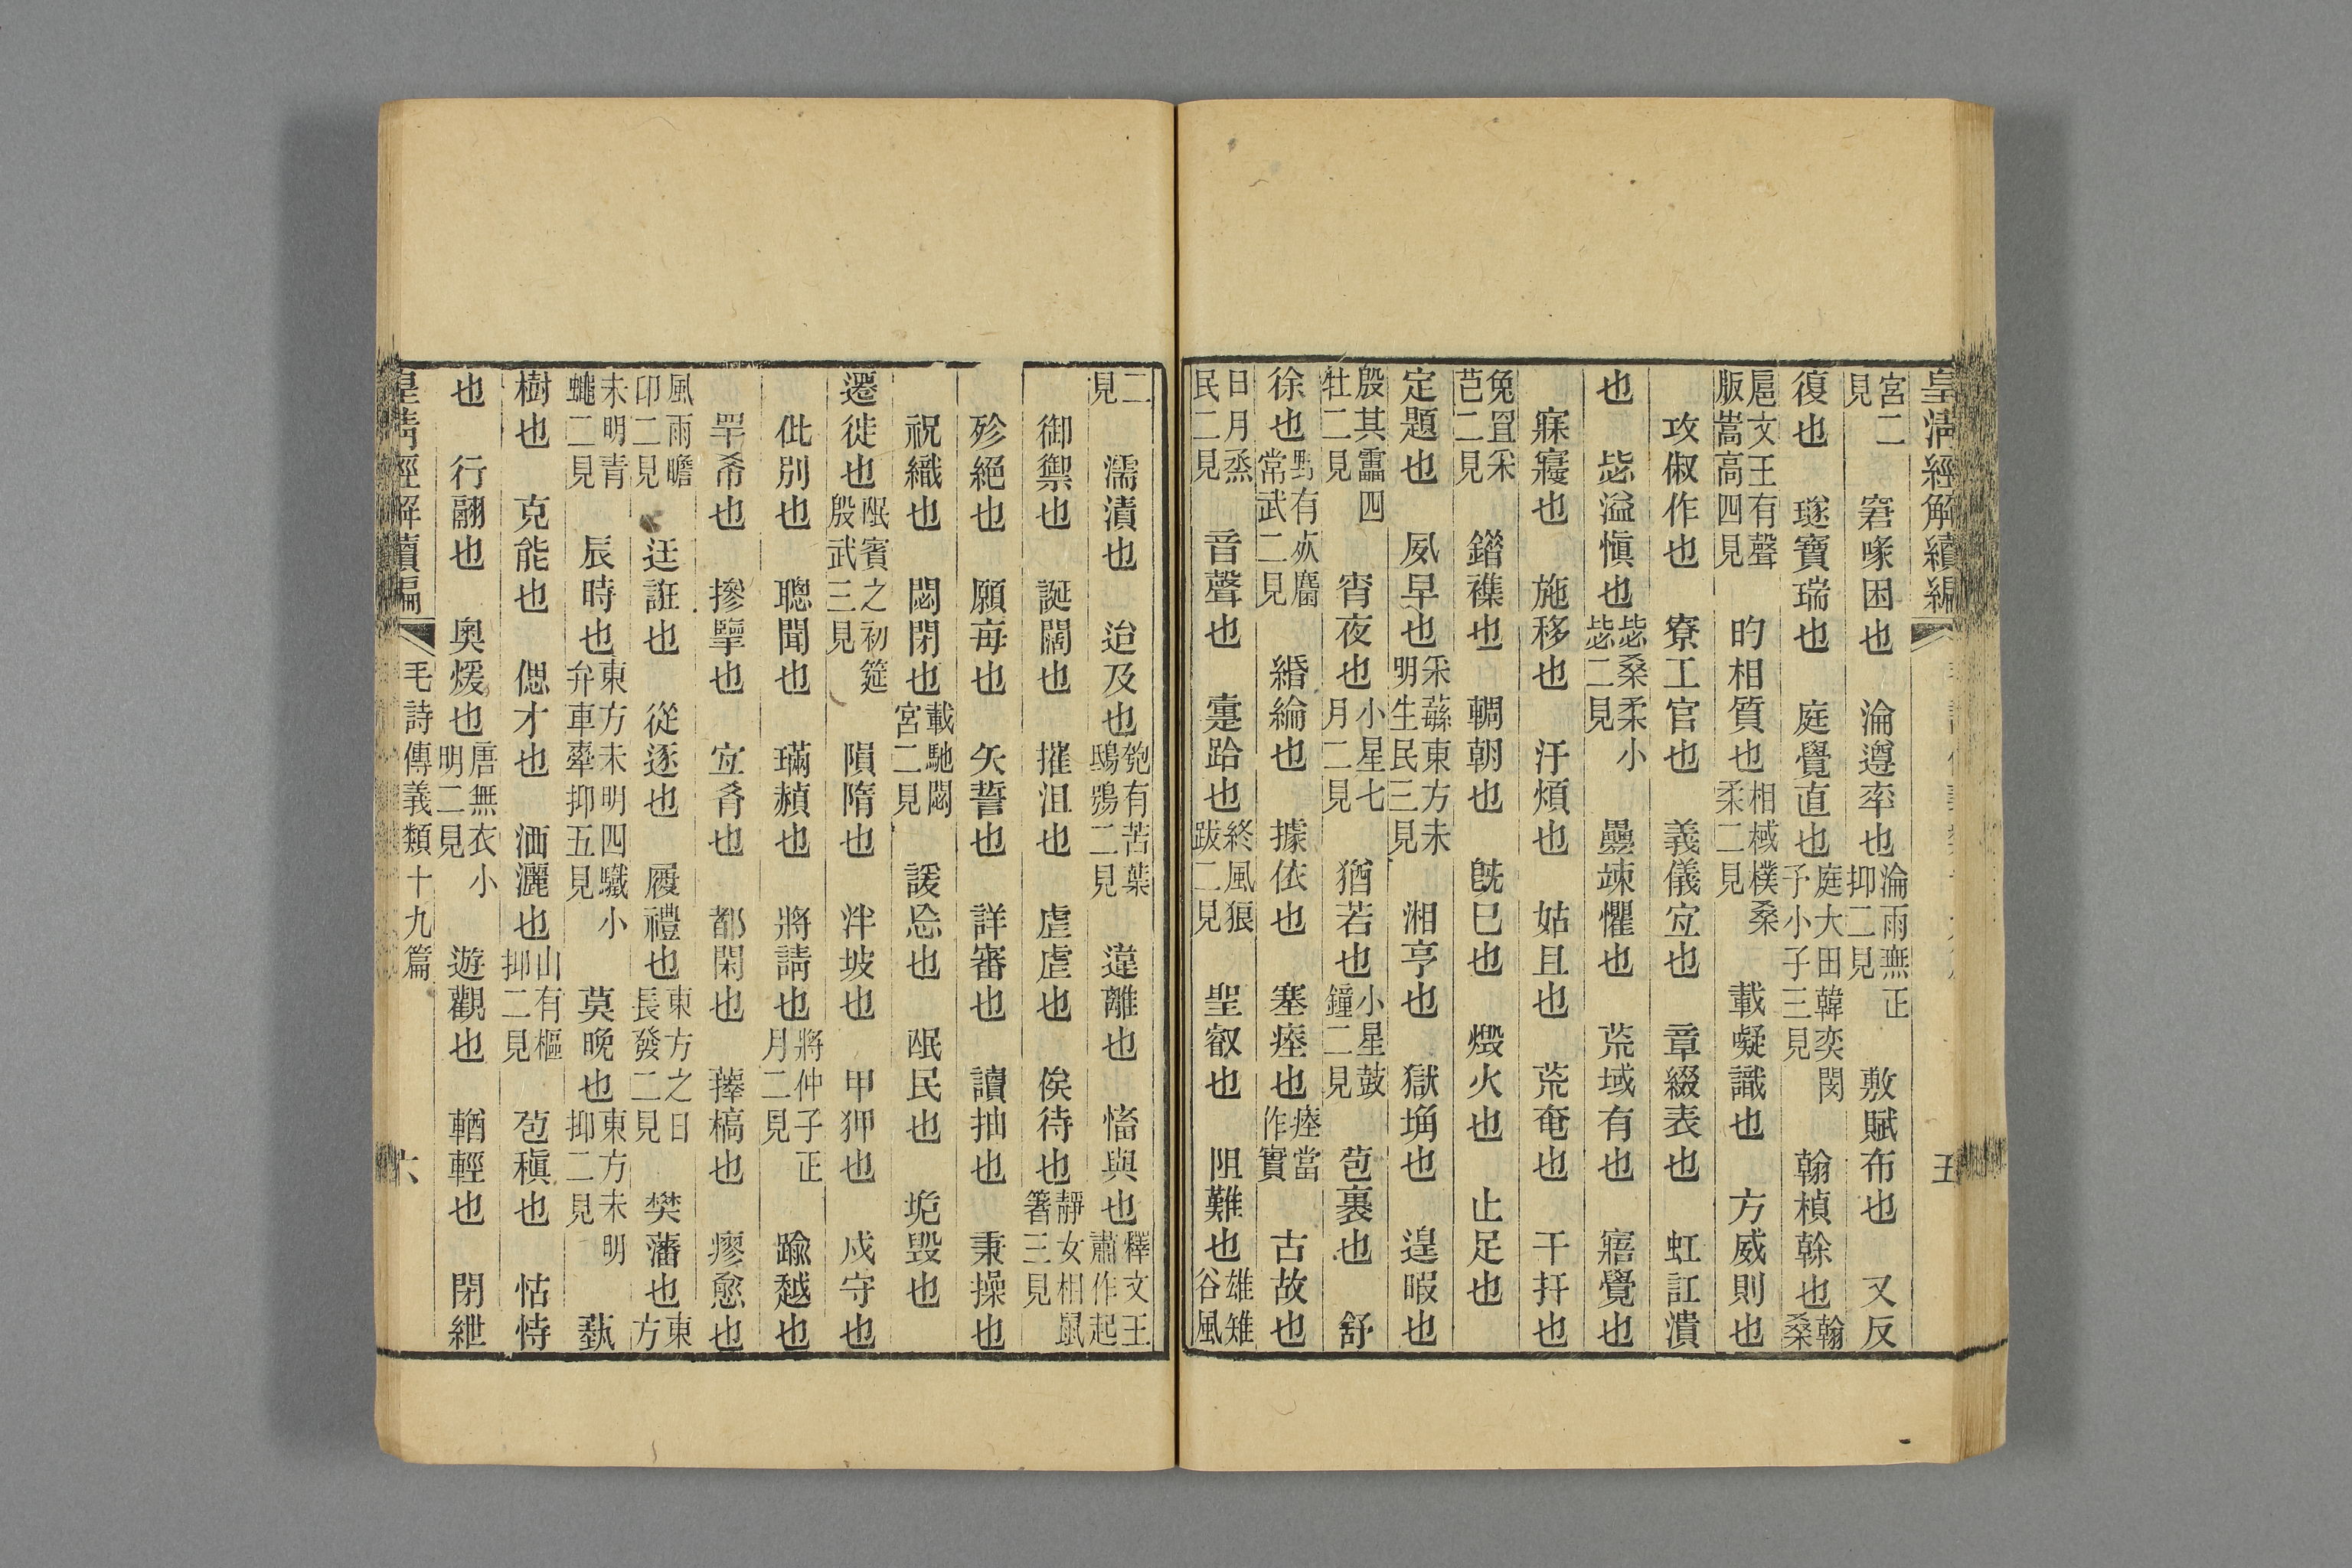 皇清經解續編
五
宮二見 窘𠷎困也 淪遵率也淪雨無正抑二見 敷賦布也 又反
復也 璲寶瑞也 庭覺直也庭大田韓奕閔予小子三見 翰楨榦也翰桑
扈文王有聲版嵩高四見 旳相質也相棫樸桑柔二見 載礙識也 方威則也
攻俶作也 寮工官也 義儀宐也 章綴表也 虹訌潰
也 毖溢愼也毖桑柔小毖二見 疊竦懼也 荒域有也 寤覺也
寐寢也 施移也 汙煩也 姑且也 荒奄也 干扞也
兔罝采芑二見 錯襍也 輖朝也 旣巳也 燬火也 止足也
定題也 夙早也采蘩東方未明生民三見 湘亨也 獄埆也 遑暇也
殷其靁四牡二見 宵夜也小星七月二見 猶若也小星鼓鐘二見 苞裹也 舒
徐也野有𣦸麕常武二見 緡綸也 據依也 塞瘞也瘞當作實 古故也
日月烝民二見 音聲也 疐跲也終風狼跋二見 聖叡也 阻難也雄雉谷風
二見 濡漬也 迨及也匏有苦葉鴟鴞二見 違離也 慉與也 檡文王肅作起
御禦也 誕闊也 摧沮也 虗虗也 俟待也靜女相鼠箸三見
殄絕也 願每也 矢誓也 詳審也 讀抽也 秉操也
祝織也 閟閉也載馳閟宮二見 諼忘也 氓民也 垝毁也
遷徙也氓賓之初筵殷武三見 隕隋也 泮坡也 甲狎也 戍守也
仳別也 聰聞也 璊赬也 將請也將仲子正月二見 踰越也
罕希也 摻擥也 宐肴也 都閑也 蘀槁也 瘳愈也
風雨瞻卬二見 迋誑也 從逐也 履禮也東方之日長發二見 樊藩也東方
未明青蠅二見 辰時也東方未明四驖小弁車舝抑五見 莫晚也東方未明抑二見 蓺
樹也 克能也 偲才也 洒灑也山有樞抑二見 苞稹也 怙恃
也 行翮也 奧煖也唐無衣小明二見 遊觀也 輶輕也 閉紲
皇清經解續編
毛詩傳義類十九篇
六